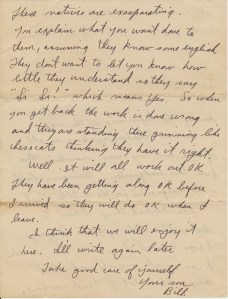 These natives are exasperating.
You explain what you want done to
them, assuming they know some english
They dont want to let you know how
little they understand so they say
"Si Si!" which means Yes. So when
you get back the work is done wrong
and they are standing there grinning like
chesecats thinking they have it right.
Well it will all work out OK.
They have been getting along OK before
I arrived so they will do OK when I
leave.
I think that we will enjoy it
here. I'll write again later
Take good care of yourself
Your son
Bill.